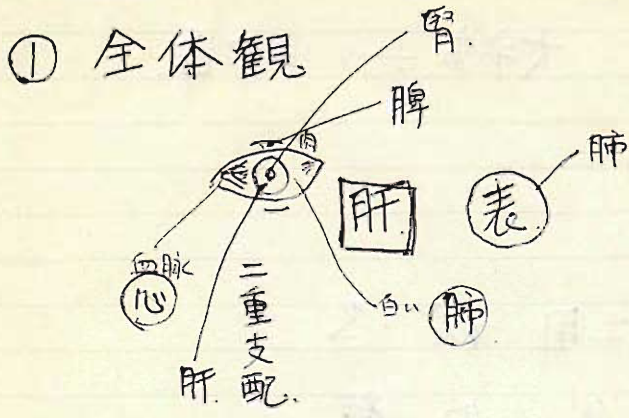 ① 全体観
腎.
脾
肉
肝
表
肺
血脈
心
二重支配.
白い
肺
肝.